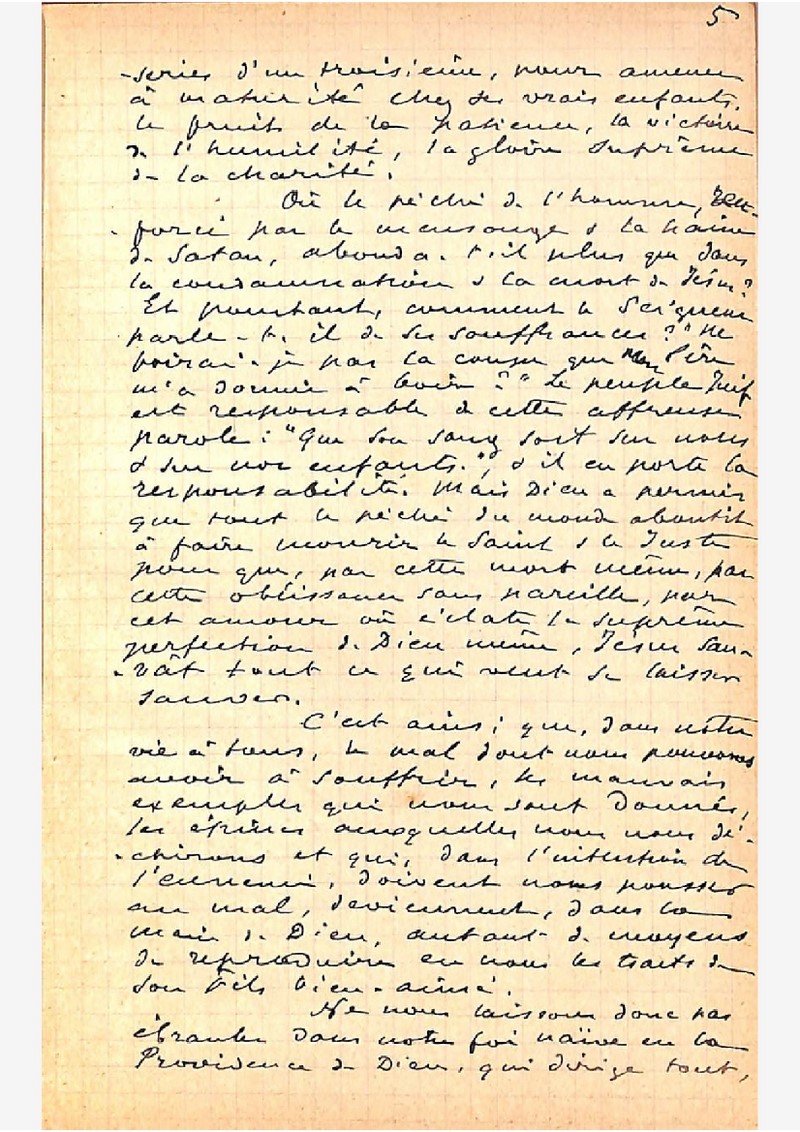 5
-series d'un troisième, pour amener
à maturité chez ses vrais enfants,
le fruit de la patience, la victoire
de l'humilité, la gloire suprême
de la charité.
Où le péché de l'homme, ren-
-forcé par le mensonge & la haine
de Satan, abonda-t-il plus que dans
la condamnation & la mort de Jésus?
Et pourtant, comment le Seigneur
parle-t-il de ses souffrances? "Ne
boirai-je pas la coupe que Mon Père
m'a donnée à boire?" Le peuple Juif
est responsable de cette affreuse
parole: "Que son sang soit sur nous
& sur nos enfants.", & il en porte la
responsabilité. Mais Dieu a permis
que tout le péché du monde aboutît
à faire mourir le Saint & le Juste
pour que, par cette mort même, par
cette obéissance sans pareille, par
cet amour où éclate la suprême
perfection de Dieu même, Jésus sau-
-vât tout ce qui veut se laisser
sauver.
C'est ainsi que, dans notre
vie à tous, le mal dont nous pouvons
avoir à souffrir, les mauvais
exemples qui nous sont donnés,
les épines auxquelles nous nous dé-
-chirons et qui, dans l'intention de
l'ennemi, doivent nous pousser
au mal, deviennent, dans la
main de Dieu, autant de moyens
de reproduire en nous les traits de
son Fils bien-aimé.
Ne nous laissons donc pas
ébranler dans notre foi naïve en la
Providence de Dieu, qui dirige tout,